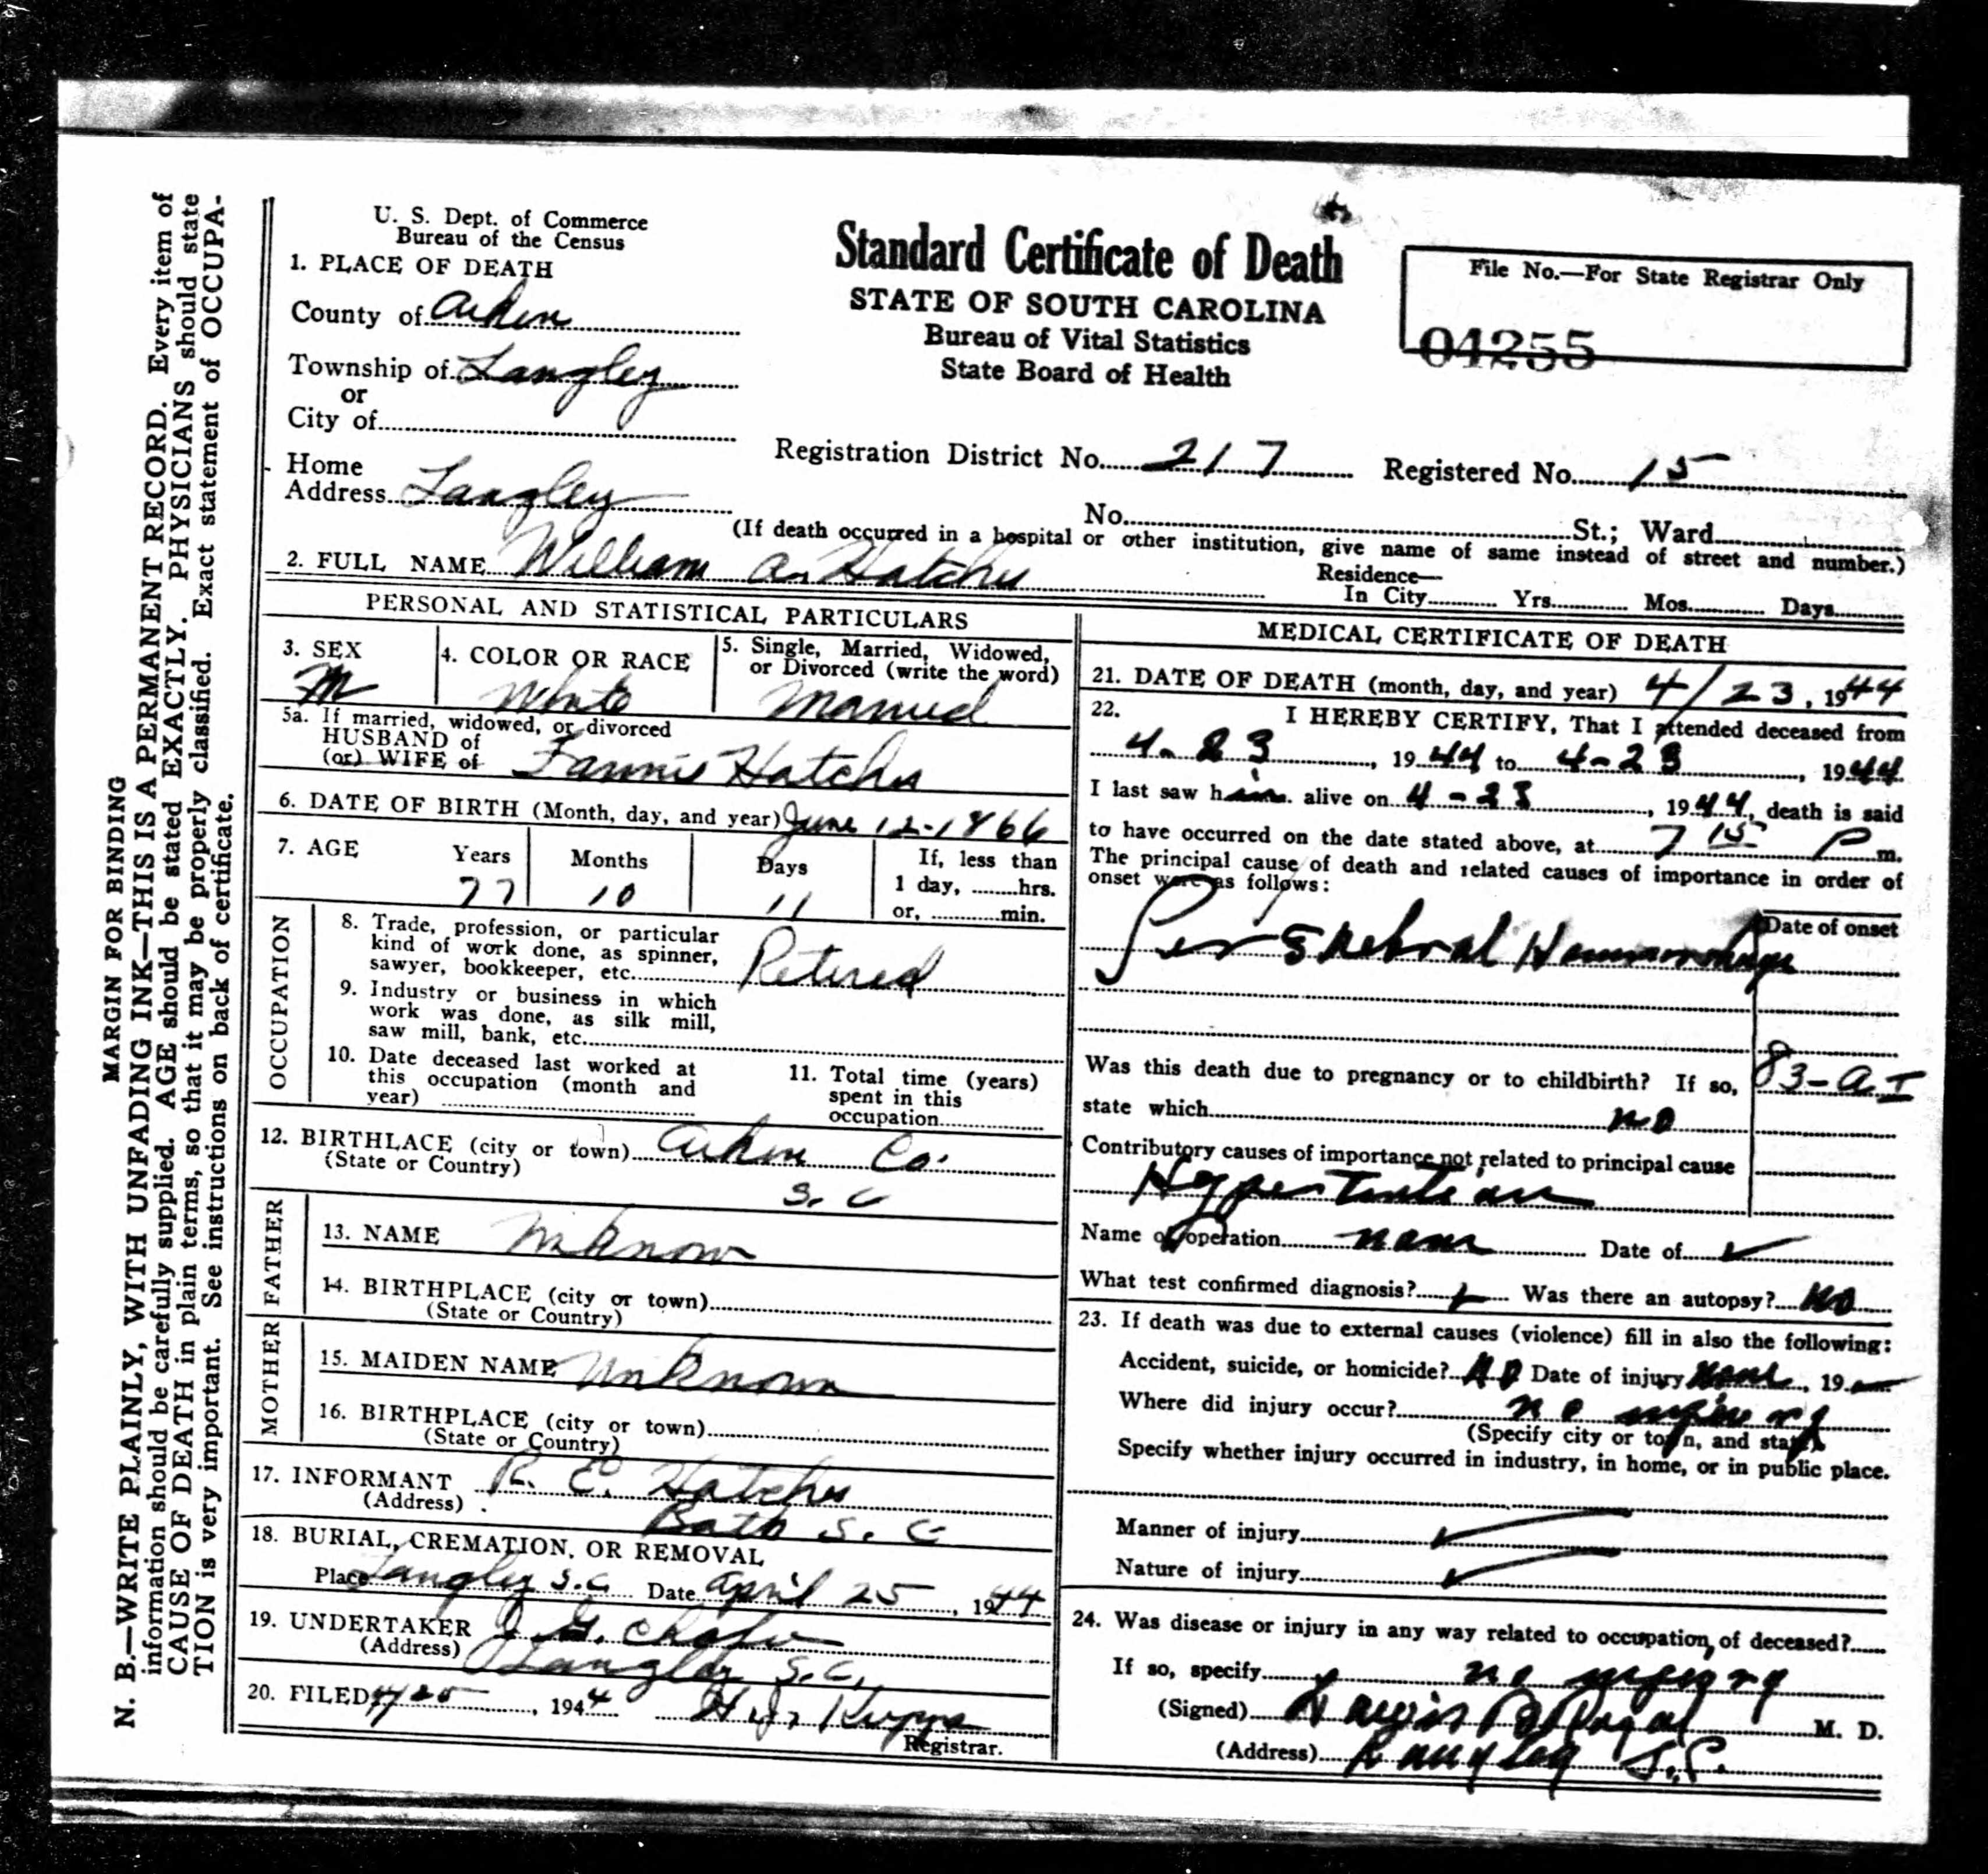 MARGIN FOR BINDING
N. B.—WRITE PLAINLY, WITH UNFADING INK—THIS IS A PERMANENT RECORD. Every item of
information should be carefully supplied. AGE should be stated EXACTLY. PHYSICIANS should state
CAUSE OF DEATH in plain terms, so that it may be properly classified. Exact statement of OCCUPA-
TION is very important. See instructions on back of certificate.
U. S. Dept. of Commerce
Bureau of the Census
Standard Certificate of Death
STATE OF SOUTH CAROLINA
Bureau of Vital Statistics
State Board of Health
File No.—For State Registrar Only
04255
1. PLACE OF DEATH
County of Aiken
Township of Langley
or
City of
Registration District No. 217 Registered No. 15
Home
Address Langley
No. St.; Ward
(If death occurred in a hospital or other institution, give name of same instead of street and number.)
2. FULL NAME William A. Hatcher
Residence—
In City Yrs. Mos. Days
PERSONAL AND STATISTICAL PARTICULARS
3. SEX
M
4. COLOR OR RACE
White
5. Single, Married, Widowed,
or Divorced (write the word)
Married
5a. If married, widowed, or divorced
HUSBAND of
(or) WIFE of Fannie Hatcher
6. DATE OF BIRTH (Month, day, and year) June 12-1866
7. AGE
Years
77
Months
10
Days
11
If, less than
1 day, hrs.
or, min.
OCCUPATION
8. Trade, profession, or particular
kind of work done, as spinner,
sawyer, bookkeeper, etc. Retired
9. Industry or business in which
work was done, as silk mill,
saw mill, bank, etc.
10. Date deceased last worked at
this occupation (month and
year)
11. Total time (years)
spent in this
occupation
12. BIRTHLACE (city or town) Aiken Co.
(State or Country) S. C
FATHER
13. NAME Unknown
14. BIRTHPLACE (city or town)
(State or Country)
MOTHER
15. MAIDEN NAME Unknown
16. BIRTHPLACE (city or town)
(State or Country)
17. INFORMANT R. E. Hatcher
(Address) Bath S. C
18. BURIAL, CREMATION, OR REMOVAL
Place Langley S.C. Date April 25, 1944
19. UNDERTAKER J. G.
(Address) Langley S.C.
20. FILED 4/25, 1944
Registrar.
MEDICAL CERTIFICATE OF DEATH
21. DATE OF DEATH (month, day, and year) 4/23, 1944
22. I HEREBY CERTIFY, That I attended deceased from
4-23, 1944 to 4-23, 1944
I last saw him alive on 4-23, 1944, death is said
to have occurred on the date stated above, at 7 15 P m.
The principal cause of death and related causes of importance in order of
onset were as follows:
Date of onset
Hemmorrhage
83-a I
Was this death due to pregnancy or to childbirth? If so,
state which no
Contributory causes of importance not related to principal cause
Hypertention
Name of operation none Date of
What test confirmed diagnosis? Was there an autopsy? No
23. If death was due to external causes (violence) fill in also the following:
Accident, suicide, or homicide? No Date of injury None, 19
Where did injury occur? no injury
(Specify city or town, and state)
Specify whether injury occurred in industry, in home, or in public place.
Manner of injury
Nature of injury
24. Was disease or injury in any way related to occupation of deceased?
If so, specify no injury
(Signed) M. D.
(Address) Langley S.C.